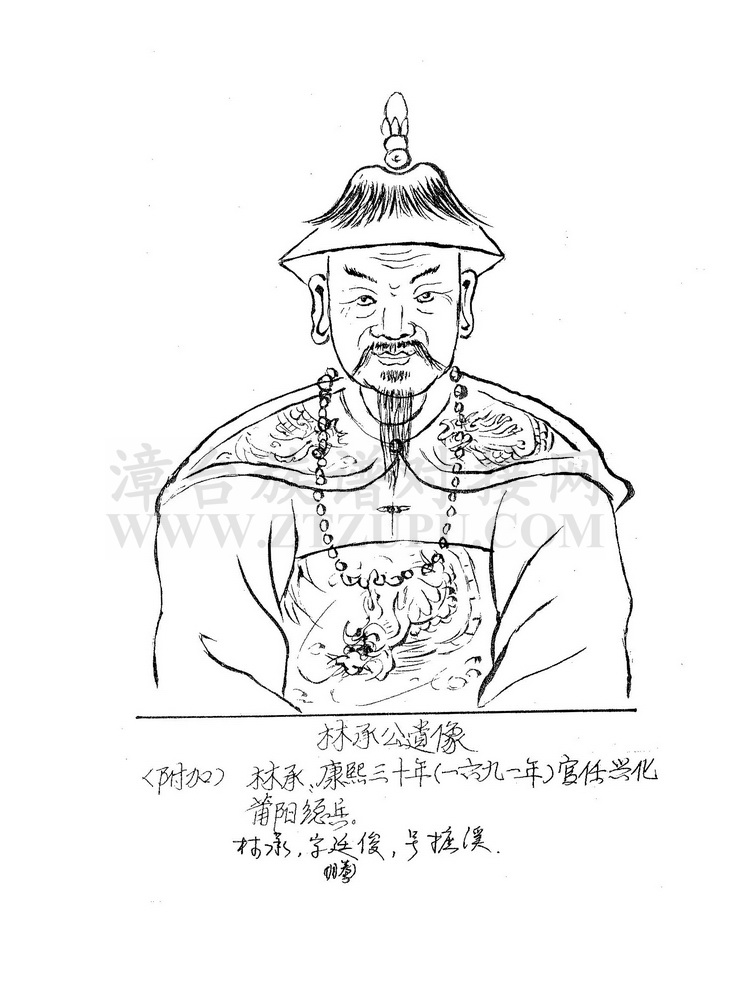 漳台族谱对接网
WWW.ZTZUPU.COM
林承公遗像
(附加) 林承、康熙三十年(一六九一年)官任兴化
莆阳总兵。
林承,字廷俊,号 溪.